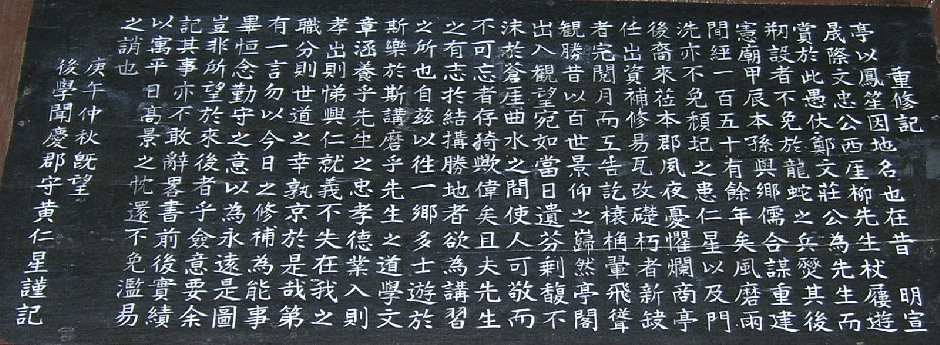 重修記
亭以鳳笙因地名也在昔　明宣
晟際文忠公西厓柳先生杖屨遊
賞於此愚伏鄭文莊公為先生而
刱設者不免於龍蛇之兵燹其後
憲廟甲辰本孫與鄉儒合謀重建
間經一百五十有餘年矣風磨雨
洗亦不免頹圮之患仁星以及門
後裔來莅本郡夙夜憂懼爛商亭
任出資補修易瓦改礎朽者新缺
者完閱月而工告訖榱桷翬飛聳
觀勝昔以百世景仰之巋然亭閣
出入觀望宛如當日遺芬剩馥不
沫於蒼厓曲水之間使人可敬而
不可忘者存猗歟偉矣且夫先生
之有志於結搆勝地者欲為講習
之所也自玆以往一鄉多士遊於
斯樂於斯講磨乎先生之道學文
章涵養乎先生之忠孝德業入則
孝出則悌興仁就義不失在我之
職分則世道之幸孰京於是哉第
有一言勿以今日之修補為能事
畢恒念勤守之意以為永遠是圖
豈非所望於來後者乎僉意要余
記其事亦不敢辭畧書前後實績
以寓平日高景之忱還不免濫易
之誚也
庚午仲秋旣望
後學聞慶郡守黃仁星謹記